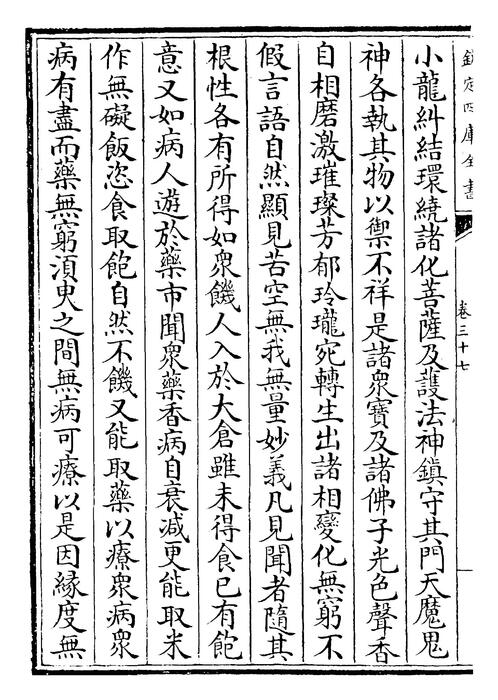 欽定四庫全書
卷三十七
小龍糾結環繞諸化菩薩及護法神鎮守其門天魔鬼
神各執其物以禦不祥是諸衆寳及諸佛子光色聲香
自相磨激璀璨芳郁玲瓏宛轉生出諸相變化無窮不
假言語自然顯見苦空無我無量妙義凡見聞者隨其
根性各有所得如衆饑人入於大倉雖未得食已有飽
意又如病人遊於藥市聞衆藥香病自衰減更能取米
作無礙飯恣食取飽自然不饑又能取藥以療衆病衆
病有盡而藥無窮須臾之間無病可療以是因緣度無